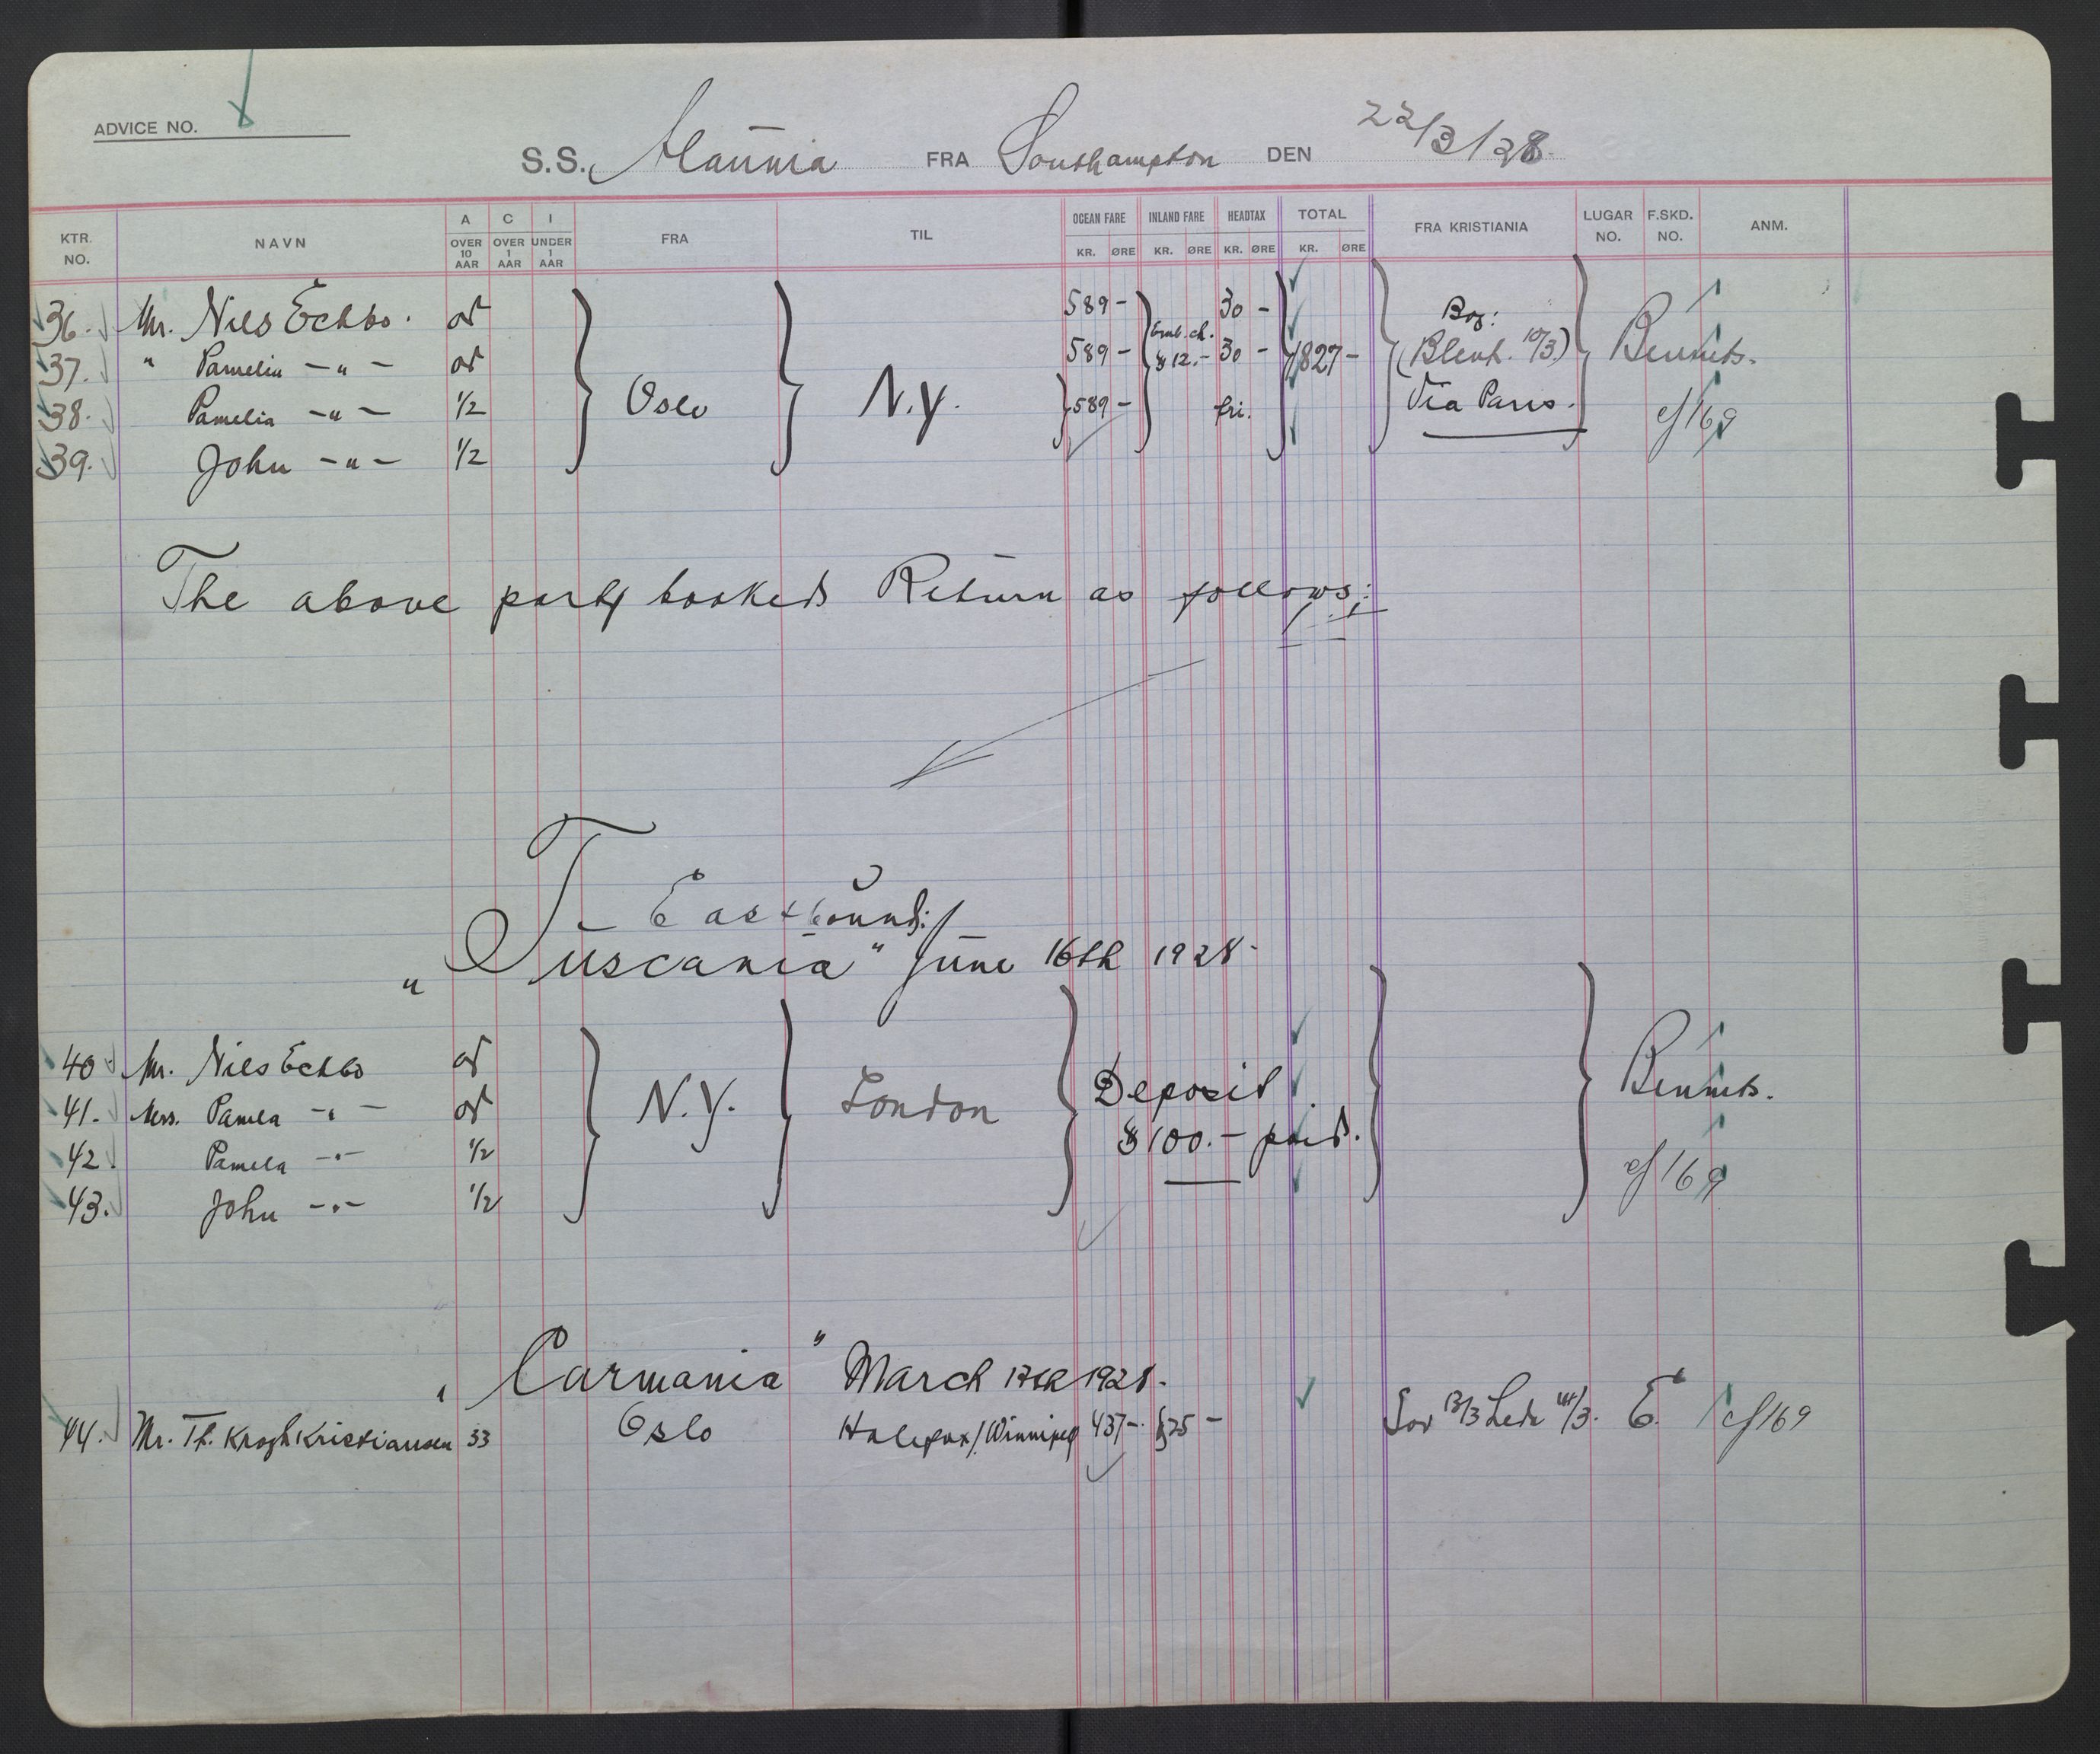 ADVICE NO.
S.S. Alaunia FRA Southampton DEN 22/3/28.
KTR. NO. NAVN A OVER 10 AAR C OVER 1 AAR I UNDER 1 AAR FRA TIL OCEAN FARE KR. ØRE INLAND FARE KR. ØRE HEADTAX KR. ØRE TOTAL KR. ØRE FRA KRISTIANIA LUGAR NO. F.SKD. NO. ANM.
36. Mr. Nils Eckbo. 589- 30-
37. " Pamelia -"- 589- $12.- 30- 1827-
38. Pamelia -"- 1/2 Oslo N.Y. 589- fri. Via Paris. cf 169
39. John -"- 1/2
The above party booked Return as follows:
Eastbound:
"Tuscania" June 16th 1928-
40 Mr. Nils Eckbo
41. Mrs. Pamela -"- N.Y. London Deposit Bennets.
42. Pamela -"- 1/2 $100.- paid.
43. John -"- 1/2 cf 169
"Carmania" March 17th 1928.
44. Mr. Th. Krogh Kristiansen 33 Oslo Halifax/Winnipeg 437- $25- 13/3 14/3. E. cf 169